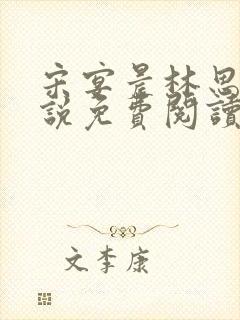 宋宴景林思
說免費閱讀
文李康